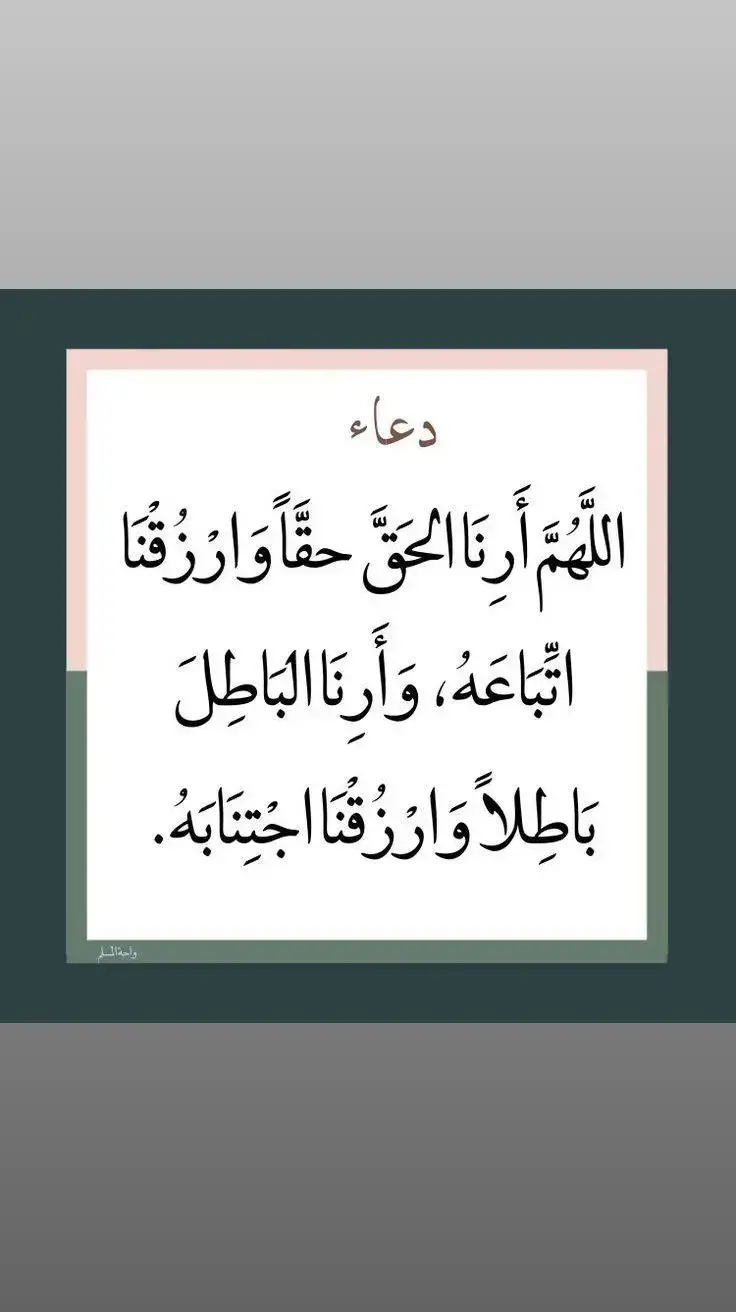 دعاء
اللَّهُمَّ أَرِنَا الحَقَّ حقَّاً وَارْزُقْنَا
اتِّبَاعَهُ، وَأَرِنَا البَاطِلَ
بَاطِلاً وَارْزُقْنَا اجْتِنَابَهُ.
واحة المسلم